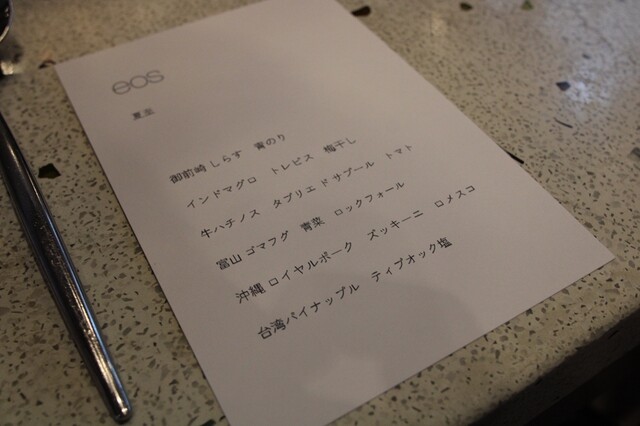 eos
夏至
御前崎 しらす 青のり
インドマグロ トレビス 梅干し
牛ハチノス タブリエ ド サプール トマト
富山 ゴマフグ 青菜 ロックフォール
沖縄 ロイヤルポーク ズッキーニ ロメスコ
台湾パイナップル ティブオック塩